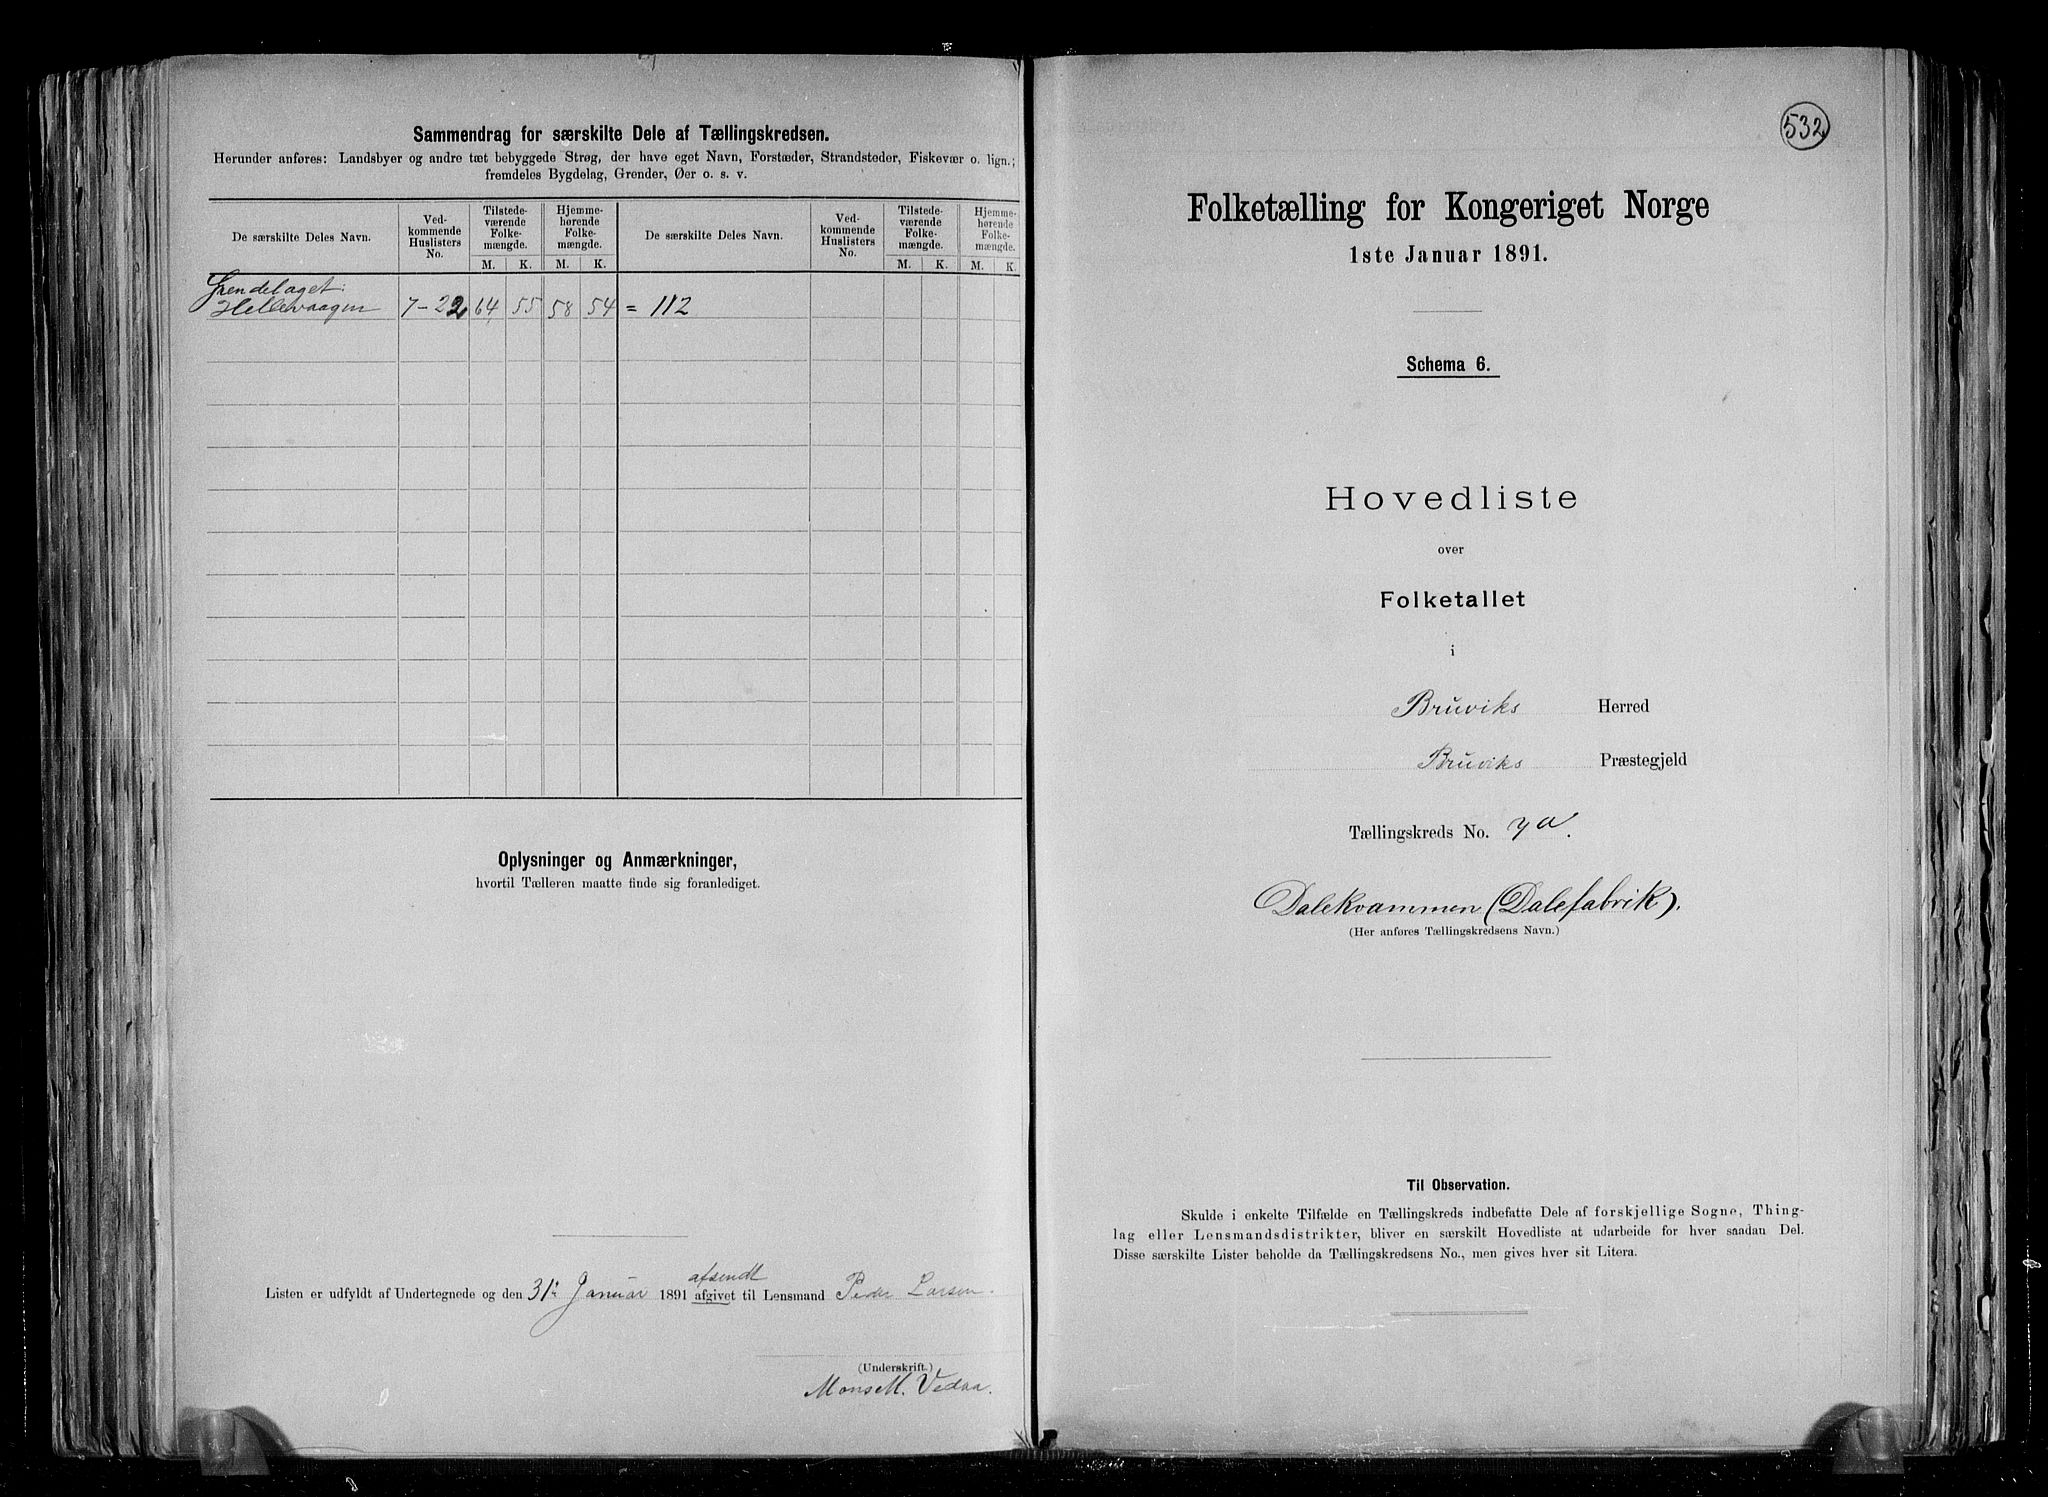 Sammendrag for særskilte Dele af Tællingskredsen.
Herunder anføres: Landsbyer og andre tæt bebyggede Strøg, der have eget Navn, Forstæder, Strandsteder, Fiskevær o. lign.;
fremdeles Bygdelag, Grender, Øer o. s. v.
De særskilte Deles Navn.
Ved-
kommende
Huslisters
No.
Tilstede-
værende
Folke-
mængde.
Hjemme-
hørende
Folke-
mængde.
De særskilte Deles Navn.
Ved-
kommende
Huslisters
No.
Tilstede-
værende
Folke-
mængde.
Hjemme-
hørende
Folke-
mængde.
M. K. M. K. M. K. M. K.
Grendelaget:
Hellevaagen 7-22 64 55 58 54 = 112
Oplysninger og Anmærkninger,
hvortil Tælleren maatte finde sig foranlediget.
afsendt
Listen er udfyldt af Undertegnede og den 31te Januar 1891 afgivet til Lensmand Peder Larsen.
(Underskrift.)
Mons M. Vedaa.
532
Folketælling for Kongeriget Norge
1ste Januar 1891.
Schema 6.
Hovedliste
over
Folketallet
i
Bruviks Herred
Bruviks Præstegjeld
Tællingskreds No. 7a.
Dalekvammen (Dalefabrik).
(Her anføres Tællingskredsens Navn.)
Til Observation.
Skulde i enkelte Tilfælde en Tællingskreds indbefatte Dele af forskjellige Sogne, Thing-
lag eller Lensmandsdistrikter, bliver en særskilt Hovedliste at udarbeide for hver saadan Del.
Disse særskilte Lister beholde da Tællingskredsens No., men gives hver sit Litera.